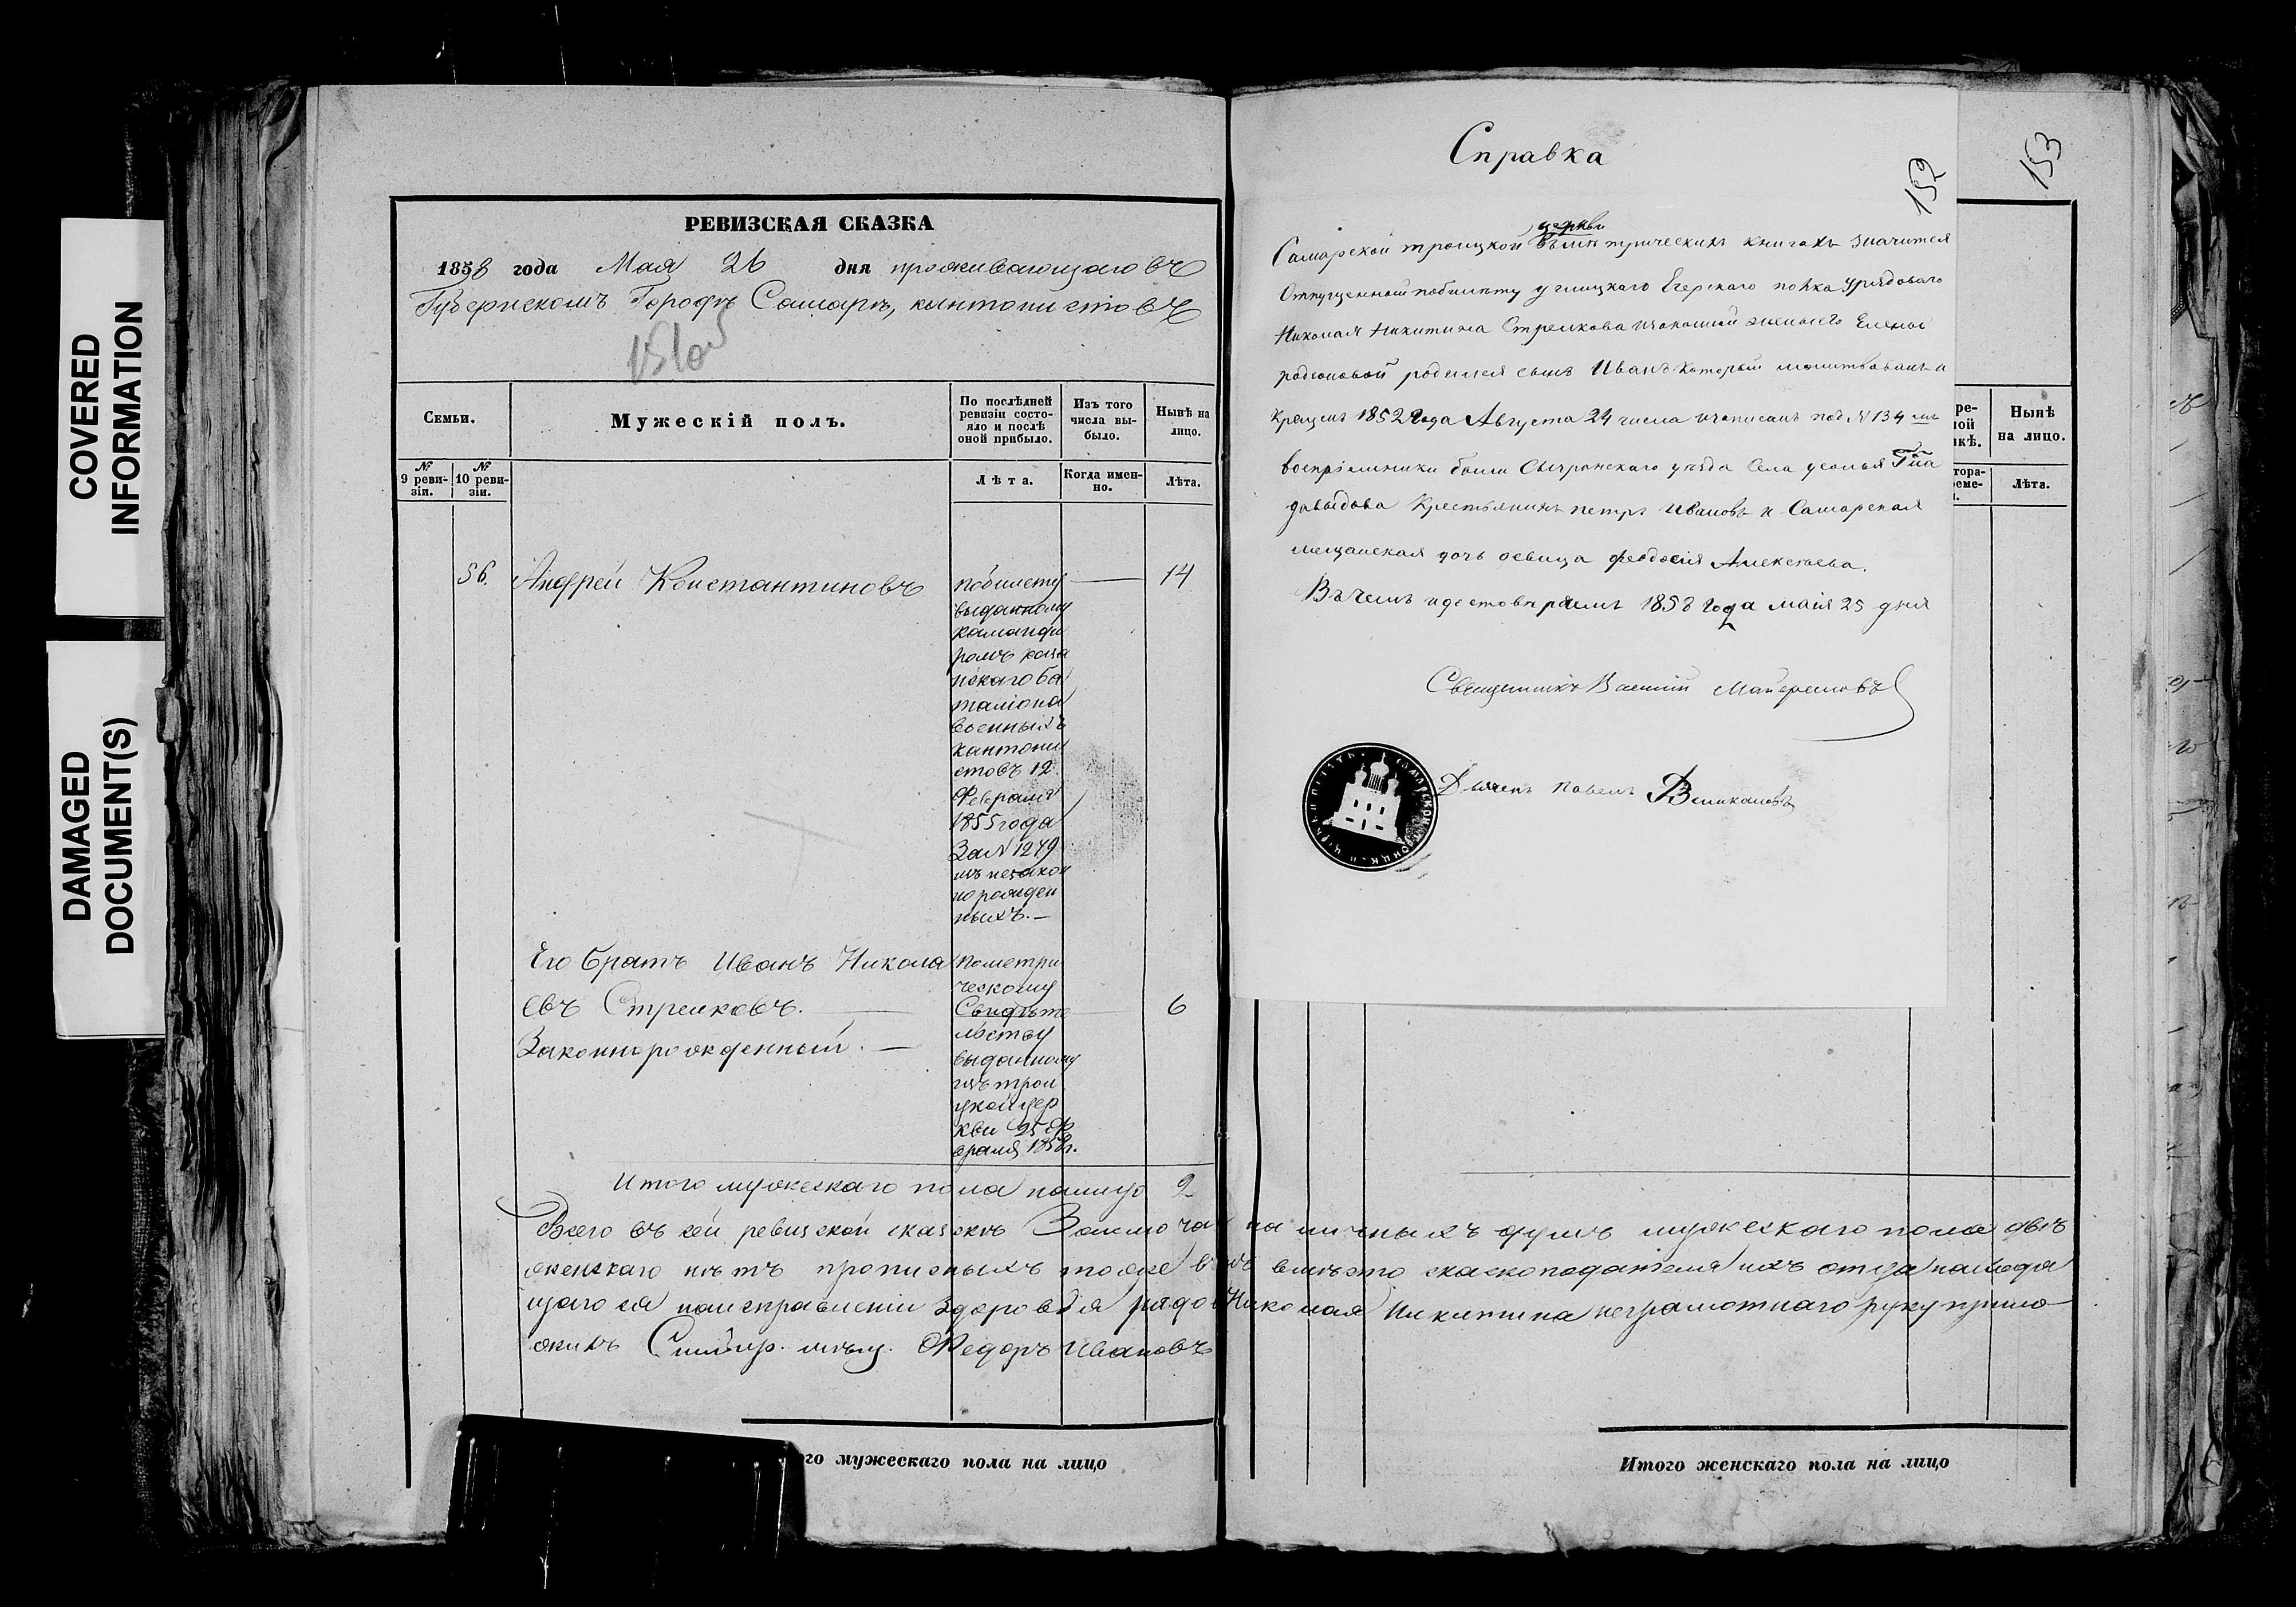 COVERED
INFORMATION
DAMAGED
DOCUMENT(S)
РЕВИЗСКАЯ СКАЗКА
1858 года Мая 26 дня проживающаго въ
Губернскомъ Городѣ Самарѣ, кантонистовъ
Семьи.
Мужескій полъ.
По послѣдней
ревизіи состо-
яло и послѣ
оной прибыло.
Изъ того
числа вы-
было.
Нынѣ на
лицо.
№
9 реви-
зіи.
№
10 реви-
зіи.
Лѣта.
Когда имен-
но.
Лѣта.
56. Андрей Константиновъ
побилету
выданному
команди
ромъ каза
нскаго ба
таліона
военныхъ
кантони
стовъ 12
Февраля
1855 года
За № 1249
изъ незакон
но рожден
ныхъ. —
14
Его братъ Иванъ Никола
евъ Стрелковъ.
Законнорожденный. —
пометри
ческому
Свидѣте
льству
выданному
изъ трои
цкой цер
кви 25 фе
враля 1858 г.
6
Итого мужескаго пола налицо 2
Всего въ сей ревизской сказкѣ Заключа на личныхъ душъ мужескаго пола двѣ
женскаго нѣтъ прописныхъ тоже вмѣсто сказкоподателя ихъ отца находя
щагося наисправленіи здоровья рядов Николая Никитина неграмотнаго руку прило
жилъ Федоръ Ивановъ
го мужескаго пола на лицо
Справка
152
церкви
Самарской троицкой вѣметрическихъ книгахъ значится
Отпущенной побилету углицкаго Егерскаго полка рядоваго
Николая Никитина Стрелкова изаконной жены его Елены
родионовой родился сынъ Иванъ который молитвованъ и
крещенъ 1852 года Августа 24 числа изаписанъ под № 134 мъ
воспріемники были Сызранскаго уѣзда Села усолья Гна
давыдова Крестьянинъ петръ Ивановъ и Самарская
мещанская дочь девица феодосія Алексѣева.
Въ чемъ и достовѣряемъ 1858 года маія 25 дня
Священникъ Василій
Дьяконъ Павелъ Великановъ
153
ре-
ной
зкѣ.
Нынѣ
на лицо.
тора-
реме-
Лѣта.
Итого женскаго пола на лицо